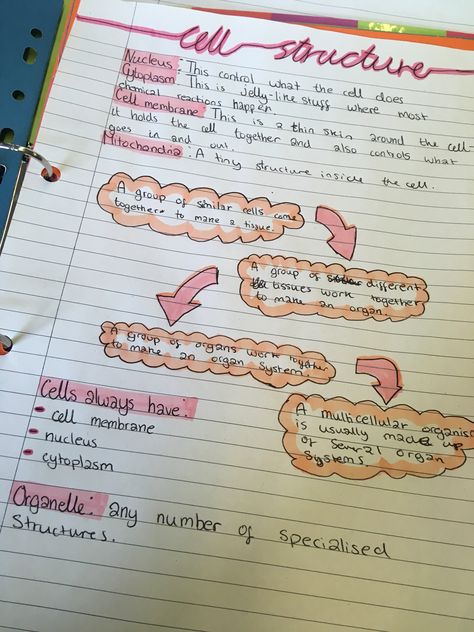 Cell structure
Nucleus: This control what the cell does
Cytoplasm: This is Jelly-like stuff where most
chemical reactions happen.
Cell membrane: This is a thin skin around the cell-
it holds the cell together and also controls what
goes in and out.
Mitochondria: A tiny structure inside the cell.
A group of similar cells come
together to make a tissue.
A group of different
tissues work together
to make an organ.
A group of organs work together
to make an organ System.
A multicellular organism
is usually made up
of several organ
Systems.
Cells always have:
cell membrane
nucleus
cytoplasm
Organelle: any number of specialised
structures.